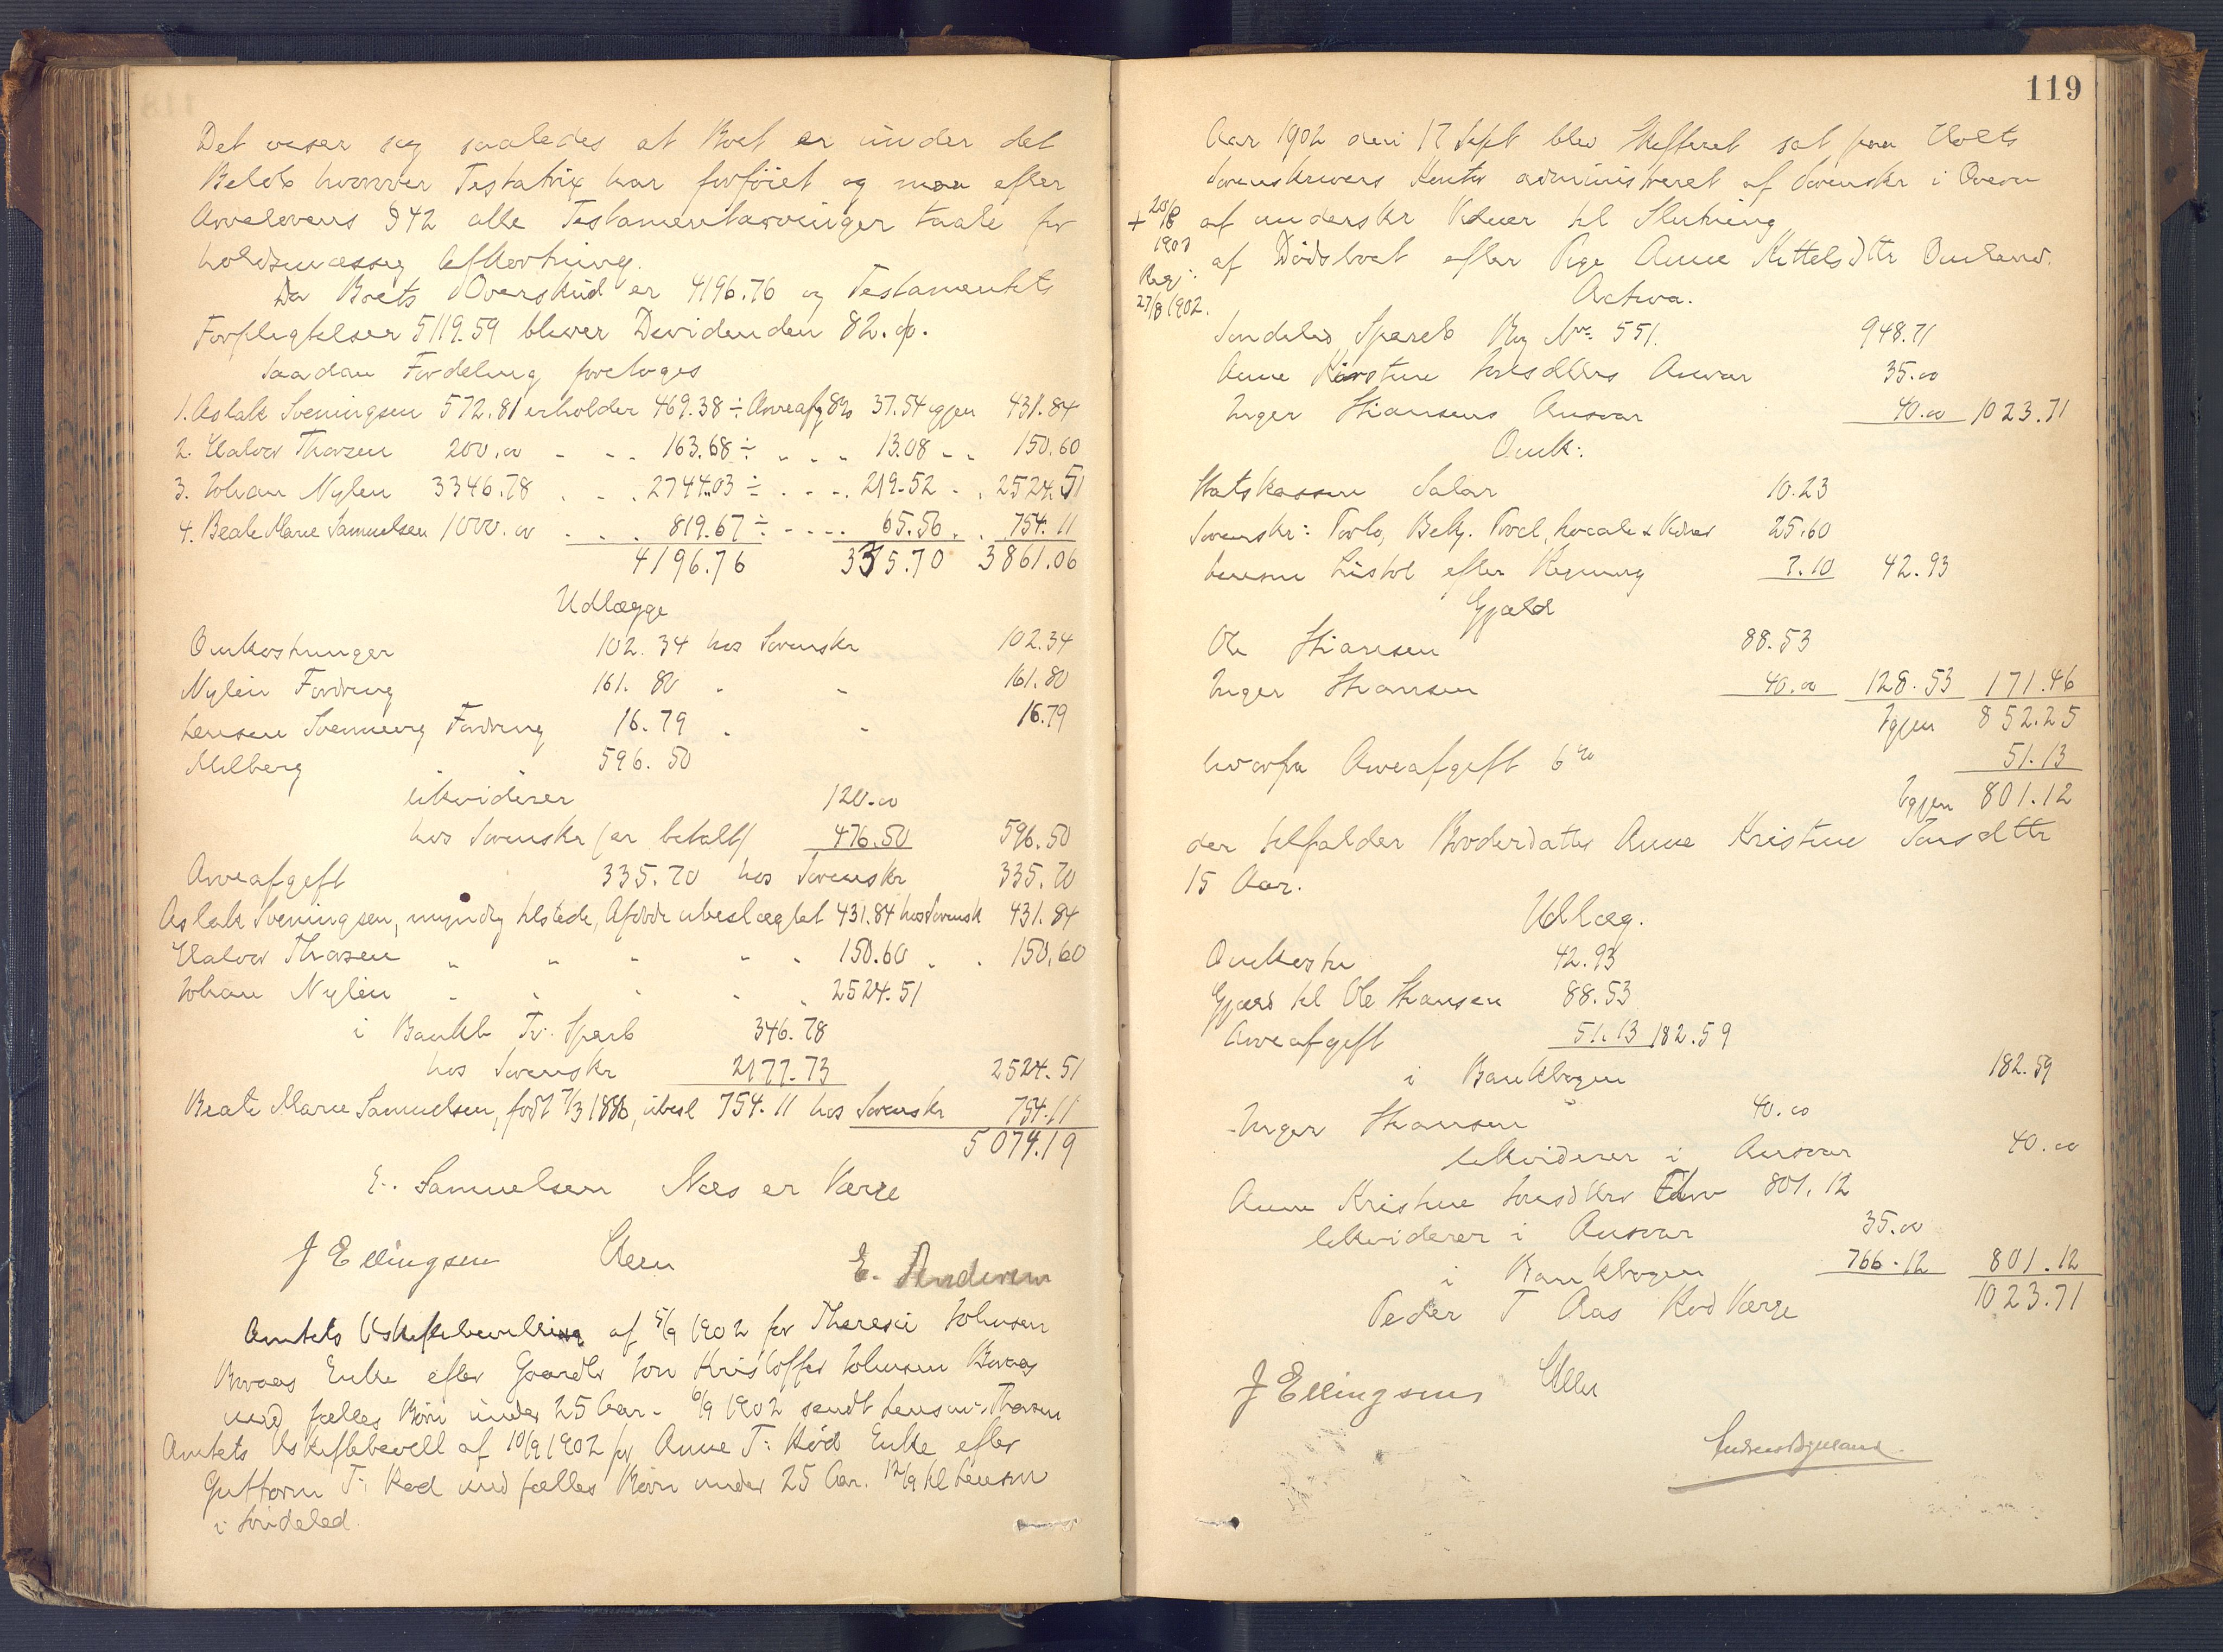 Det viser sig saaledes at Boet er under det
Beløb hvorover Testatrix har forføiet og maa efter
Arvelovens § 42 alle Testamentsarvinger taale for
holdsmæssig Afkortning.
Da Boets Overskud er 4196.76 og Testamentets
Forpligtelser 5119.59 bliver Dividenden 82. %.
Saadan Fordeling foretoges
1. Aslak Sveningsen 572.81 erholder 469.38 ÷ Arveafg 8% 37.54 igjen 431.84
2. Halvor Thorsen 200.00 - - - 163.68 ÷ - - - 13.08 - - 150.60
3. Johan Nylen 3346.78 - - - 2744.03 ÷ - - - 219.52 - - 2524.51
4. Beate Marie Samuelsen 1000.00 - - - 819.67 ÷ - - - 65.56 - - 754.11
4196.76 335.70 3861.06
Udlægges
Omkostninger 102.34 hos Sorenskr 102.34
Nylen Fordring 161.80 - - 161.80
Lensm Svennevig Fordring 16.79 - - 16.79
Melberg 596.50
likviderer 120.00
hos Sorenskr (er betalt) 476.50 596.50
Arveafgift 335.70 hos Sorenskr 335.70
Aslak Sveningsen, myndig tilstede, Afdøde ubeslægtet 431.84 hos Sorensk 431.84
Halvor Thorsen " " " " " 150.60 - - 150.60
Johan Nylen " " " " " 2524.51
i Bankb Tv. Spareb 346.78
hos Sorenskr 2177.73 2524.51
Beate Marie Samuelsen, født 7/3 1886, ubesl 754.11 hos Sorenskr 754.11
5074.19
E. Samuelsen Næs er Værge
J Ellingsen E. Andersen
Amtets Uskiftebevilling af 5/9 1902 for Johnsen
Enke efter Gaardbr Jon Kristoffer Johnsen
med fælles Børn under 25 Aar. 6/9 1902 sendt Lensm. Thorsen
Amtets Uskiftebevill af 10/9 1902 for Anne T. Rød Enke efter
Guttorm T. Rød med fælles Børn under 25 Aar. 12/9 til Lensm
i Søndeled
119
Aar 1902 den 17 Sept blev Skifteret sat paa Holts
Sorenskrivers Kontor administreret af Sorenskr i Overv
af underskr Vidner til Slutning
af Dødsboet efter Pige Anne Kittelsdtr Omland.
+ 20/8
1902
Reg:
27/8 1902.
Activa.
Søndeled Spareb Bog No. 551. 948.71
Anne Kirstine Jonsdatters Ansvar 35.00
Inger Stiansens Ansvar 40.00 1023.71
Omk:
Statskassen Salær 10.23
Sorenskr: Proto, Bekj. Procl, Locale & Vidner 25.60
Lensm Listol efter Regning 7.10 42.93
Gjæld
Ole Stiansen 88.53
Inger Stiansen 40.00 128.53 171.46
Igjen 852.25
hvorfra Arveafgift 6% 51.13
Igjen 801.12
der tilfalder Broderdatter Anne Kristine Jonsdtr
15 Aar.
Udlæg.
Omkostn 42.93
Gjæld til Ole Stiansen 88.53
Arveafgift 51.13 182.59
i Bankbogen 182.59
Inger Stiansen 40.00
likviderer i Ansvar 40.00
Anne Kristine Jonsdatter 801.12
likviderer i Ansvar 35.00
i Bankbogen 766.12 801.12
Peder T Aas Rød Værge 1023.71
J Ellingsen